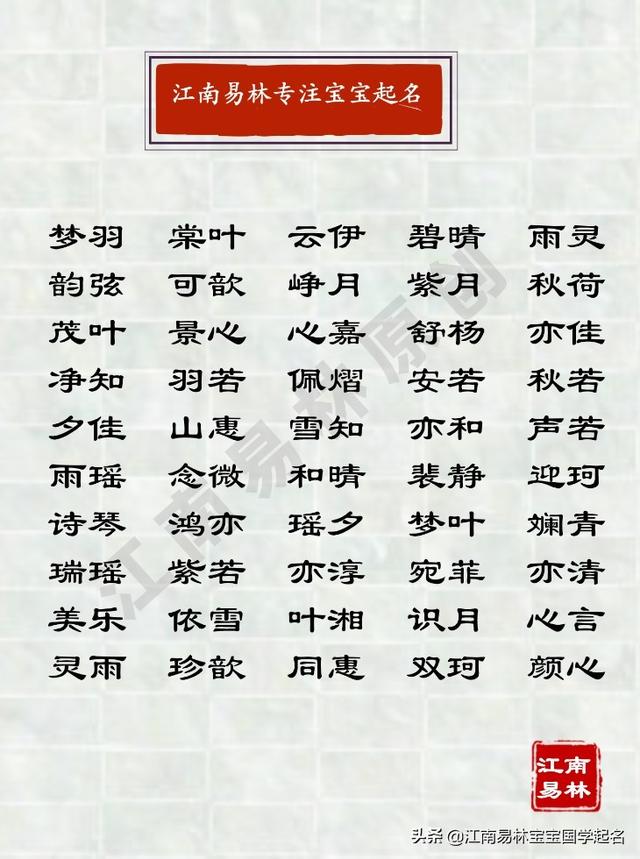 江南易林专注宝宝起名
梦羽 棠叶 云伊 碧晴 雨灵
韵弦 可歆 峥月 紫月 秋荷
茂叶 景心 心嘉 舒杨 亦佳
净知 羽若 佩熠 安若 秋若
夕佳 山惠 雪知 亦和 声若
雨瑶 念微 和晴 裴静 迎珂
诗琴 鸿亦 瑶夕 梦叶 娴青
瑞瑶 紫若 亦淳 宛菲 亦清
美乐 依雪 叶湘 识月 心言
灵雨 珍歆 同惠 双珂 颜心
江南易林原创
江南
易林
头条 @江南易林宝宝国学起名